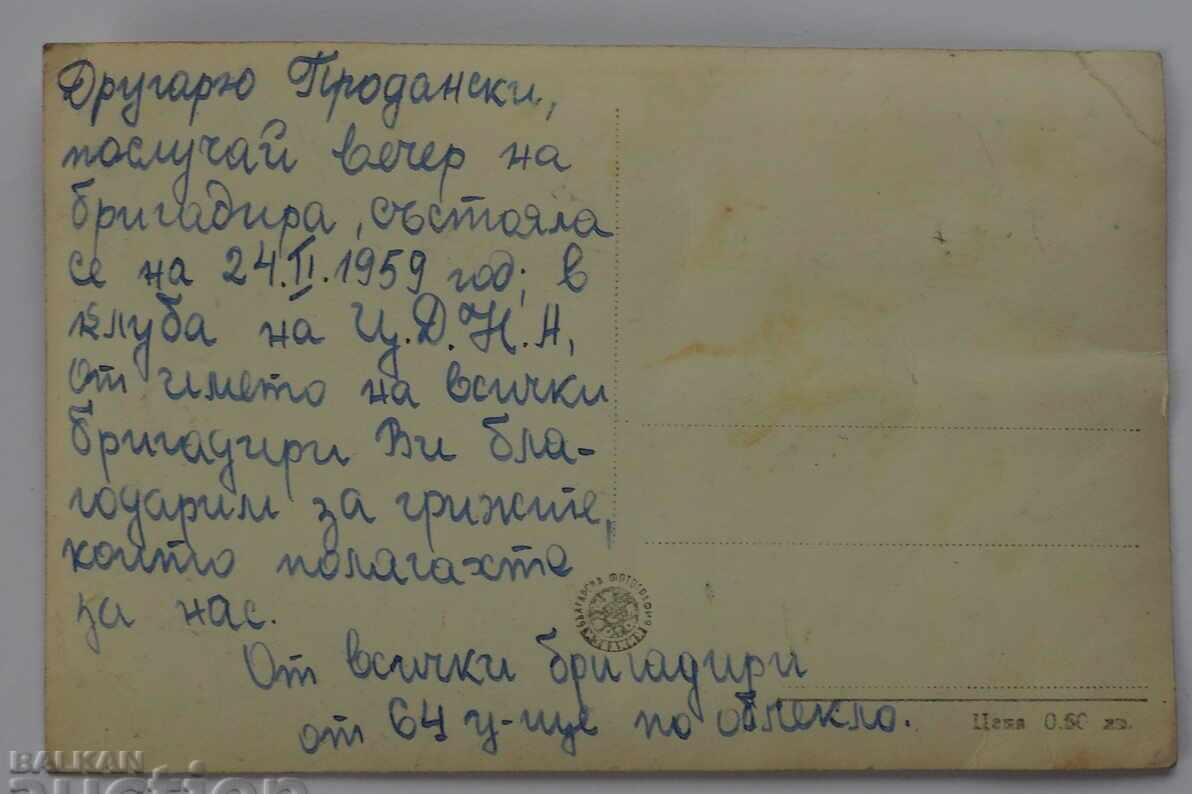 Другарю Продански,
послучай вечер на
бригадира, състояла
се на 24.II.1959 год; в
клуба на Ц.Д.Н.А,
От името на всички
бригадири Ви бла-
годарим за грижите,
които полагахте
за нас.
От всички бригадири
от 64 у-ще по облекло.
БЪЛГАРСКА ФОТОГРАФИЯ
Цена 0.60 лв.
BALKAN
auction